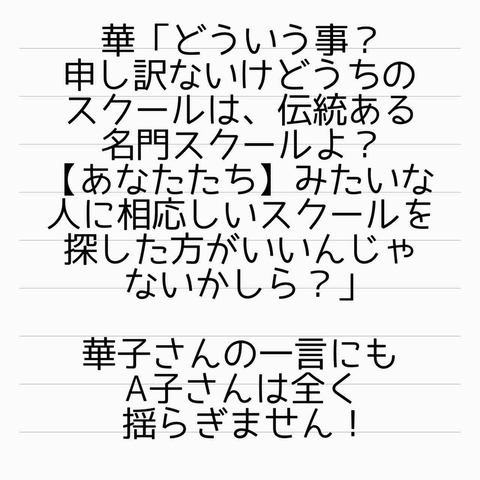 華「どういう事？
申し訳ないけどうちの
スクールは、伝統ある
名門スクールよ？
【あなたたち】みたいな
人に相応しいスクールを
探した方がいいんじゃ
ないかしら？」
華子さんの一言にも
A子さんは全く
揺らぎません！